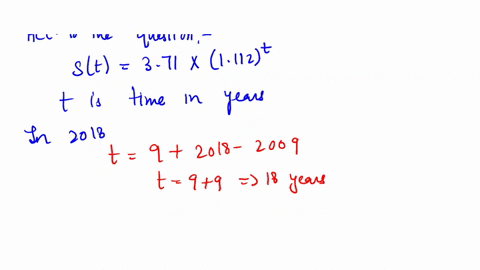 the question,-
S(t) = 3.71 × (1.112)^t
t is time in years
In 2018
t = 9 + 2018 - 2009
t = 9+9 => 18 years